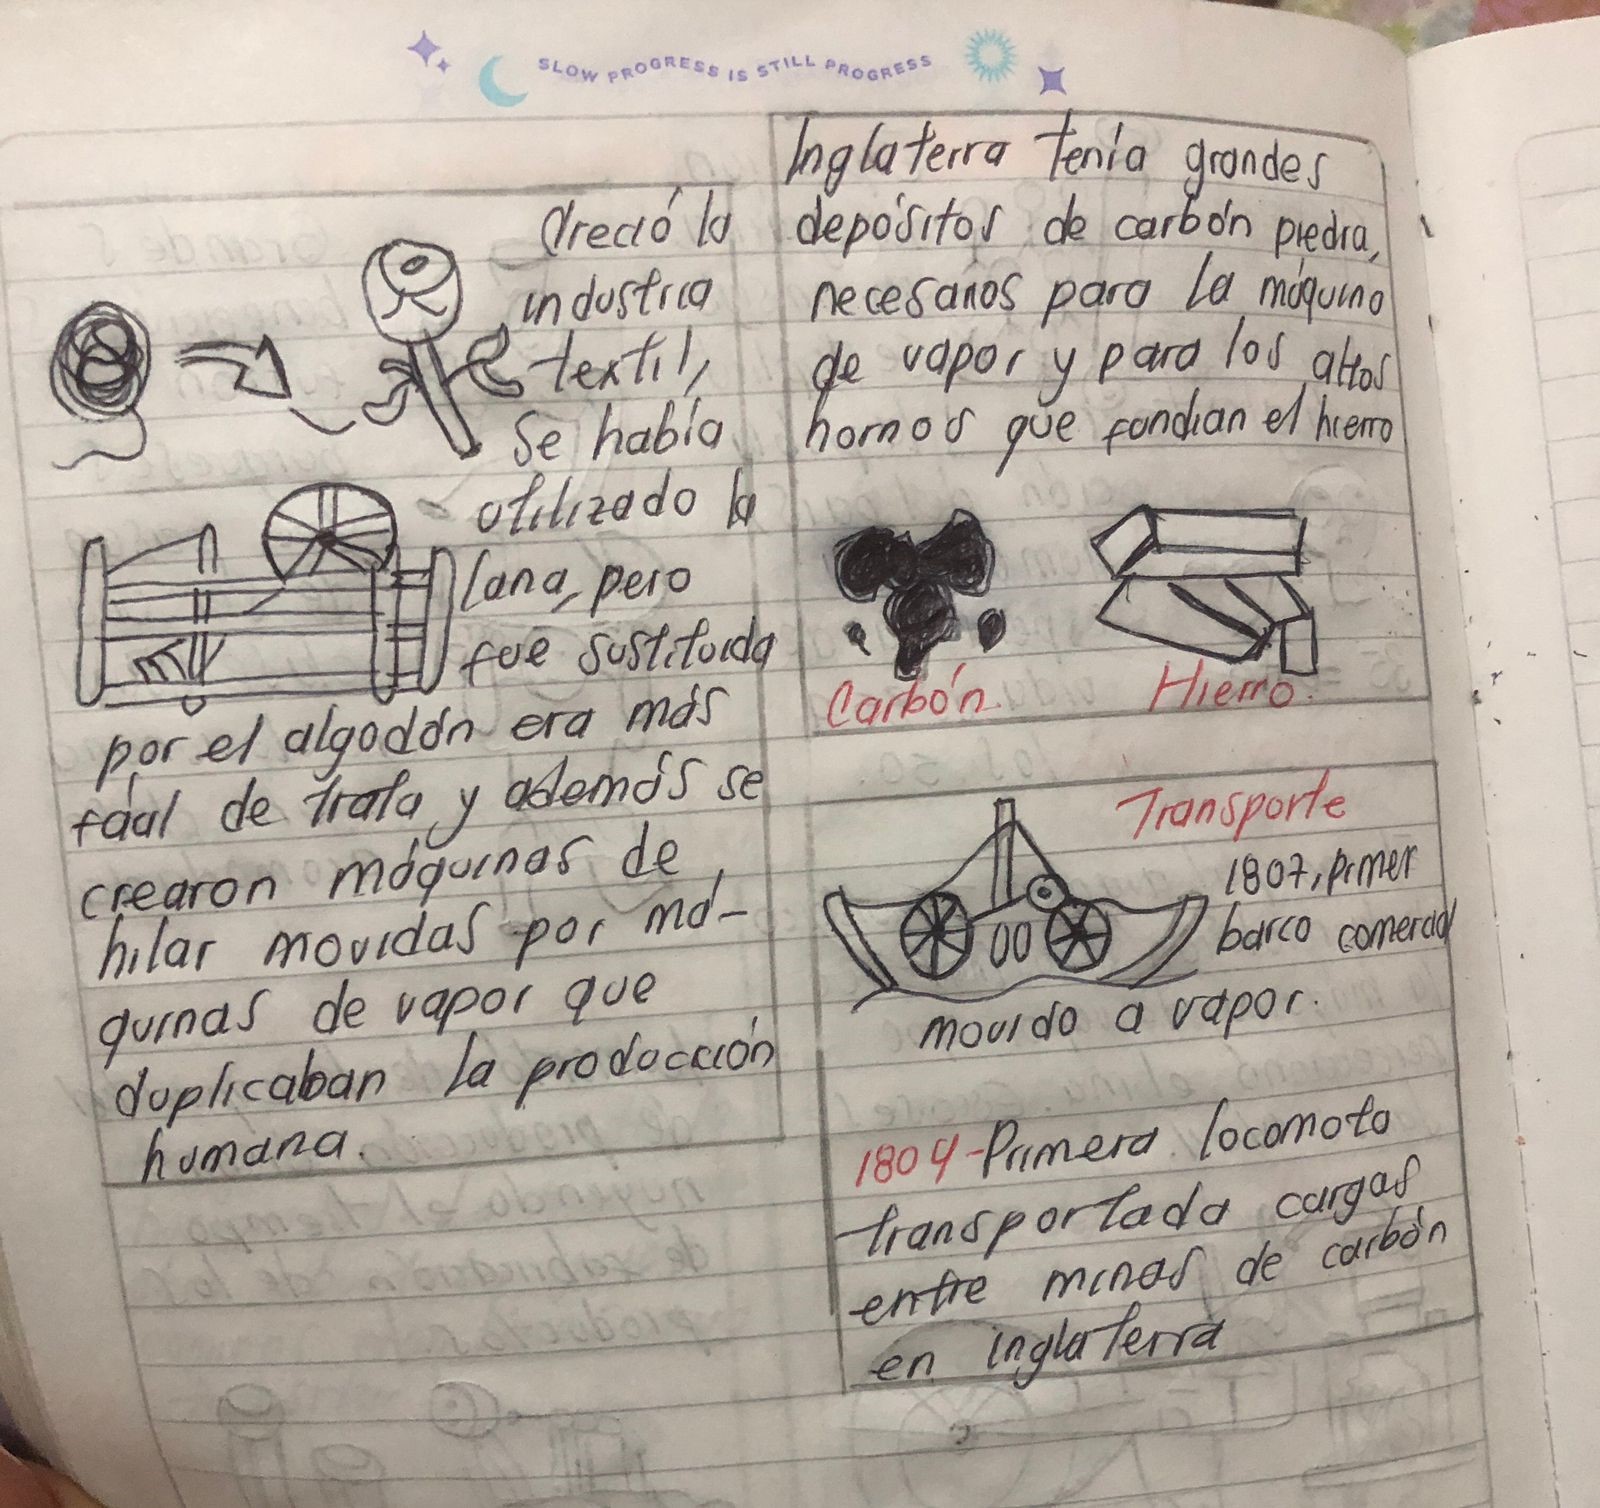 SLOW PROGRESS IS STILL PROGRESS
Creció la
industria
textil,
se había
utilizado la
lana, pero
fue sustituida
por el algodón era más
fácil de trata y además se
crearon máquinas de
hilar movidas por má-
quinas de vapor que
duplicaban la producción
humana.
Inglaterra tenía grandes
depósitos de carbón piedra,
necesarios para la máquina
de vapor y para los altos
hornos que fundian el hierro
Carbón.
Hierro.
Transporte
1807, primer
barco comercial
movido a vapor.
1804-Primera locomoto
transportada cargas
entre minas de carbón
en inglaterra